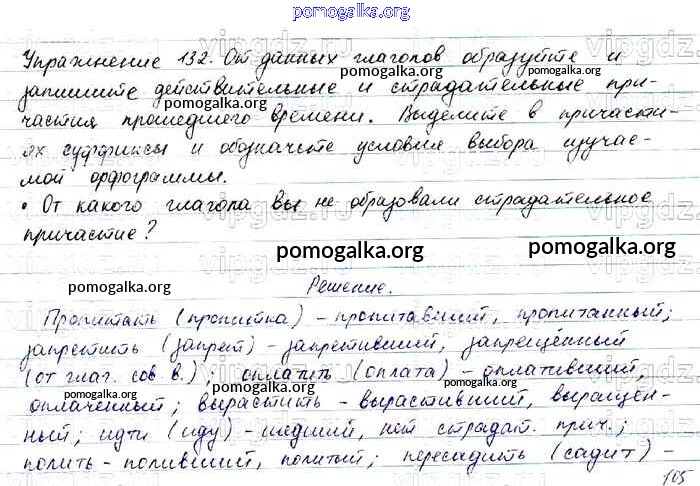 pomogalka.org
Упражнение 132. От данных глаголов образуйте и
pomogalka.org
запишите действительные и страдательные при-
pomogalka.org
частия прошедшего времени. Выделите в причасти-
ях суффиксы и обозначьте условия выбора изучае-
мой орфограммы.
• От какого глагола вы не образовали страдательное
pomogalka.org
причастие?
pomogalka.org
pomogalka.org
pomogalka.org
Решение.
Пропитать (пропитка) – пропитавший, пропитанный;
запретить (запрет) – запретивший, запрещённый
(от глаг. сов в.); оплатить (оплата) – оплативший,
оплаченный; вырастить – вырастивший, выращен-
ный; идти (иду) – шедший, нет страдат. прич.;
полить – поливший, политый; пересадить (садит) –
pomogalka.org
105